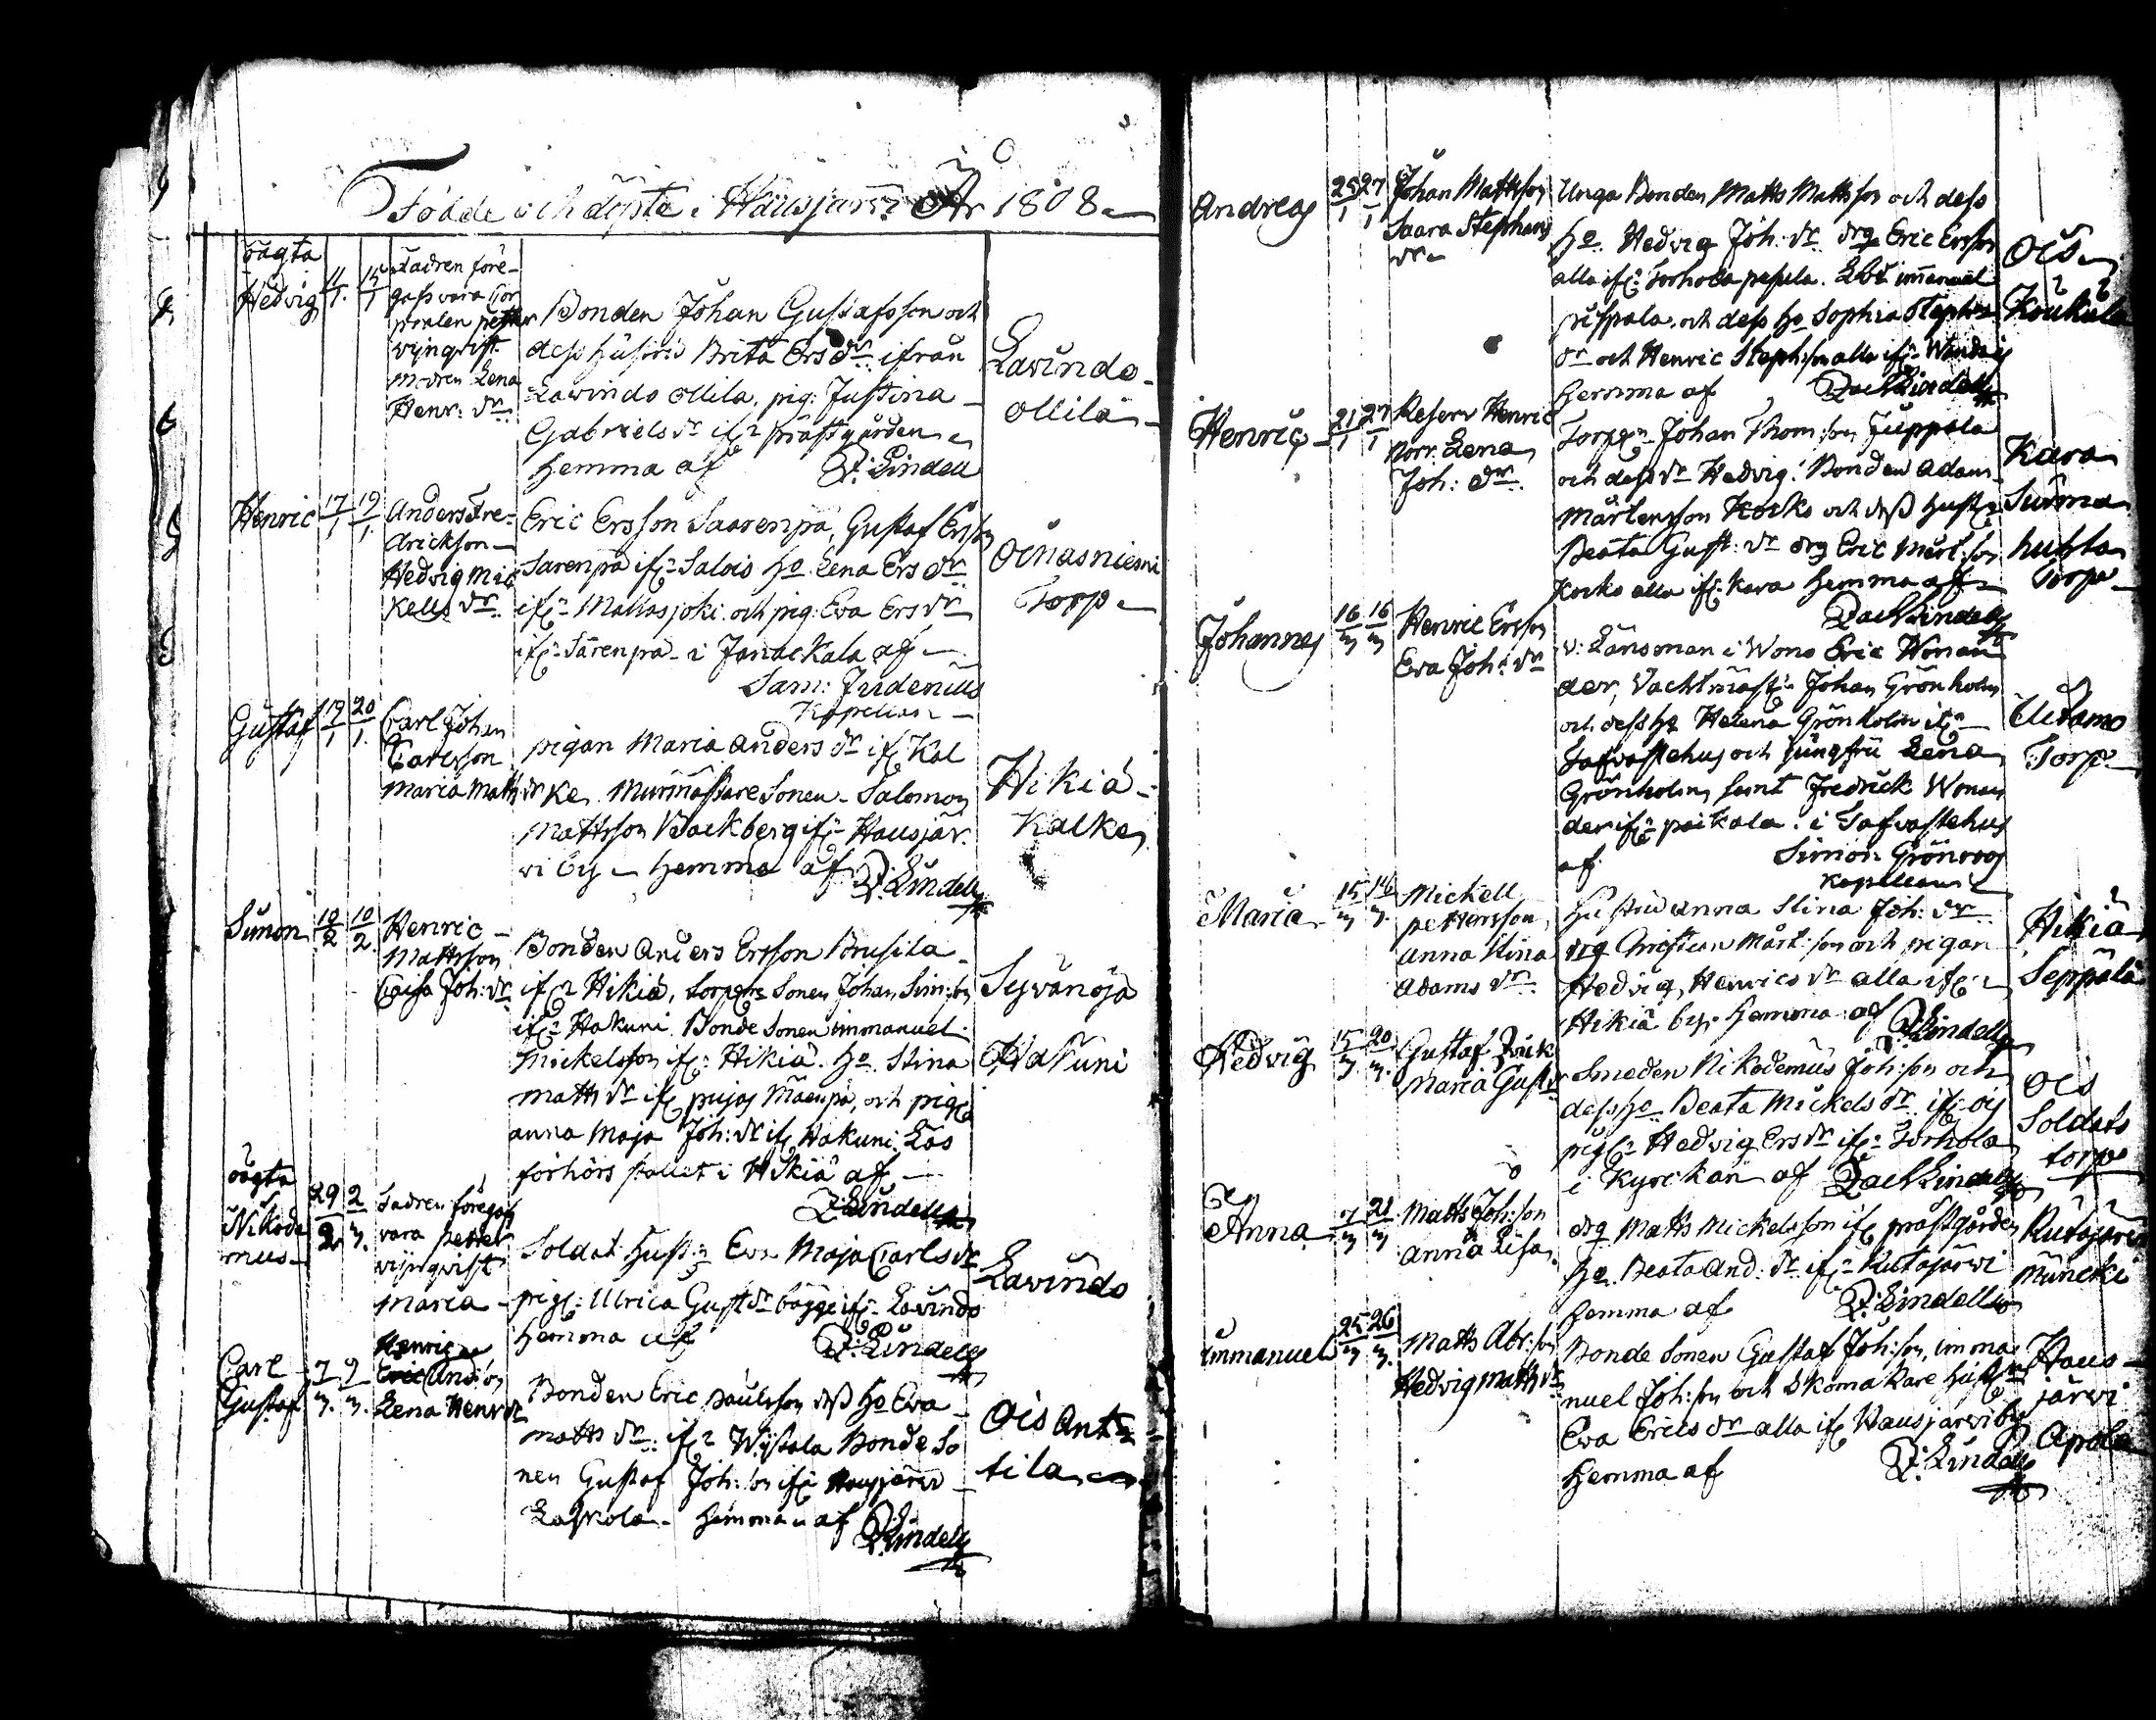 Födde och döpte i Hausjärvi År 1808
oägta
Hedvig 11/1. 15/1
Fadren före-
gafs vara Cor
poralen petter
vijnqvist
modren Lena
Henr: dr
Bonden Johan Gustafsson och
dess hustru Brita Ers dr ifrån
Lavindo ollila, pig: Justina
Gabriels dr ifr prästgården
hemma af Z: Lindell
Lavindo
ollila
Henric 17/1 19/1.
Anders Fre-
dricksson
Hedvig Mic
kells dr
Eric Ersson Saarenpä, Gustaf Ersson
Sarenpä ifr Salois ho Lena Ers dr
ifr Mallasjoki och pig: Eva Ers dr
ifr Särenpä i Janackala af
Sam: Judenius
Kapellan
Oinasniemi
Torp
Gustaf 19/1 20/1.
Carl Johan
Carlsson
Maria Matts dr
pigan Maria Anders dr ifr Kal
ke, Murmästare Sonen Salomon
Mattsson Backberg ifr Hausjär
vi by hemma af Z: Lindell
Hikiä
Kalke
Simon 10/2 10/2
Henric
Mattsson
Caisa Joh: dr
Bonden Anders Ersson Prusila
ifr Hikiä, torpare Sonen Johan Sim:son
ifr Hakuni. Bonde Sonen immanuel
Mickelsson ifr Hikiä. ho Stina
Matts dr ifr pujas Mäenpä, och pigan
anna Maja Joh: dr ifr Hakuni. Läs
förhörs stället i Hikiä af
Z: Lindell
Syvänoja
Hakuni
oägta
Nikode
mus 29/2 2/3.
Fadren föregafs
vara petter
vijnqvist
Maria
Soldat Hust: Eva Maja Carls dr
pig: Ulrica Gust dr bägge ifr Lavindo
hemma af Z: Lindell
Lavindo
Carl
Gustaf 7/3. 9/3.
Henric
Eric And:son
Lena Henr dr
Bonden Eric paulsson dess ho Eva
Matts dr: ifr Wijsala Bonde So
nen Gustaf Joh:son ifr Hausjärvi
Laskola hemma af Z: Lindell
Ois Ant
tila
Andreas 25/1 27/1
Johan Mattsson
Saara Stephans
dr
Unga Bonden Matts Mattsson och dess
ho Hedvig Joh: dr drg Eric Ersson
alla ifr Torhola pessla. immanuel
prispala, och dess ho Sophia Stephs
dr och Henric Steph:son alla ifr
hemma af Zach Lindell
Ois
Koukula
Henric 21/1 27/1
Reserv Henric
Norr. Lena
Joh: dr
Torp: Johan Thom:son Juppala
och dess dr Hedvig: Bonden Adam
Mårtensson Korko och dess hust
Beata Gust: dr drg Eric Mårt:son
Korko alla ifr Kara hemma af
Zach Lindell
Kara
Surma
huhta
Torp
Johannes 16/3 16/3
Henric Ersson
Eva Joh: dr
v: Länsman i Wono Eric Wonan
der, Vachtmäst: Johan Grönholm
och dess ho Helena Grönholm ifr
Tafvastehus och jungfru Lena
Grönholm, samt Fredrick Wonan
der ifr paikala. i Tafvastehus
af Simon Grönroos
Kapellan
Torp
Maria 15/3 16/3.
Mickell
pettersson
Anna Stina
Adams dr
Hustrun anna Stina Joh: dr
drg Christian Mårt:son och pigan
Hedvig Henrics dr alla ifr
Hikiä by. hemma af Z: Lindell
Hikiä
Seppälä
Hedvig 15/3. 20/3.
Gustaf
Maria Gust dr
Smeden Nikodemus Joh:son och
dess ho Beata Mickels dr ifr ois
pig: Hedvig Ers dr ifr Torhola
i Kyrckan af Zach Lindell
Ois
Soldats
torp
Anna 7/3 21/3
Matts Joh:son
anna Lisa
drg Matts Mickelsson ifr prästgården
ho Beata And: dr ifr Rutajärvi
hemma af Z: Lindell
Rutajärvi
Muncki
immanuel 25/3 26/3.
Matts Abr:son
Hedvig Matts dr
Bonde Sonen Gustaf Joh:son, imma
nuel Joh:son och Skomakare hust
Eva Erics dr alla ifr Hausjärvi by
hemma af Z: Lindell
Haus-
järvi
Apola